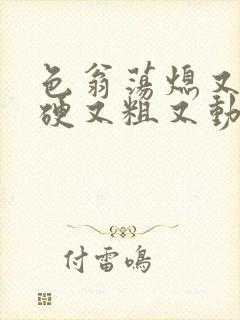 色翁荡熄又
硬又粗又動
付雷鳴